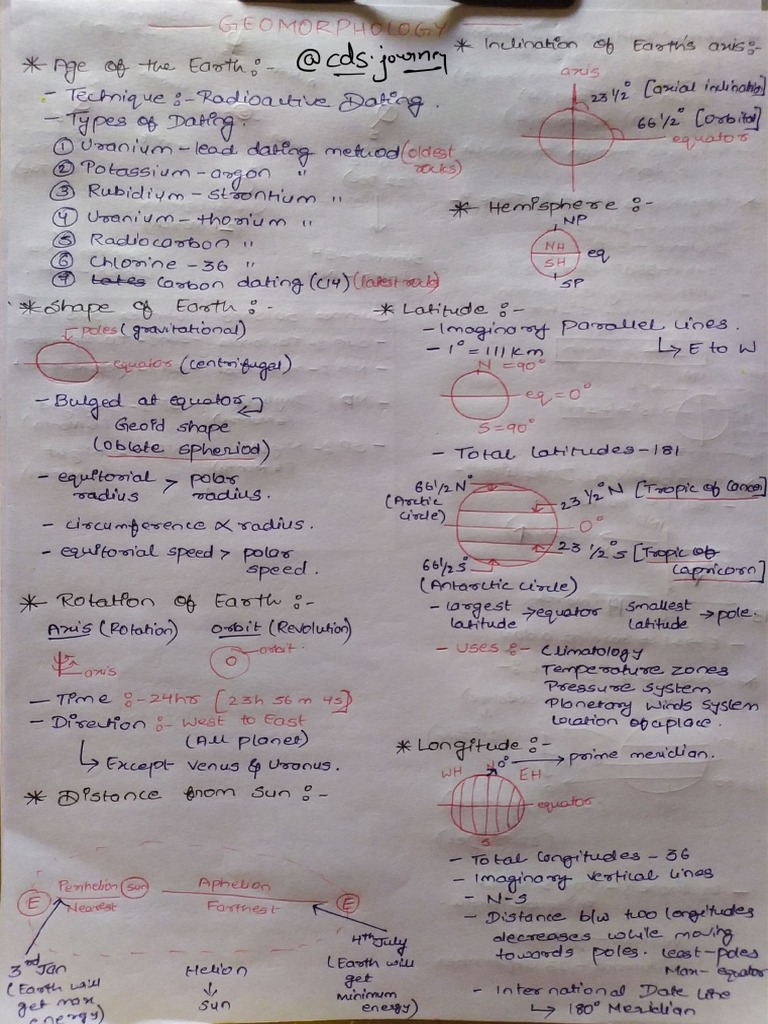 GEOMORPHOLOGY
@cds.journey
* Age of the Earth :-
- Technique :- Radioactive Dating.
- Types of Dating.
① Uranium - lead dating method (oldest rocks)
② Potassium - argon "
③ Rubidium - strontium "
④ Uranium - thorium "
⑤ Radiocarbon "
⑥ Chlorine - 36 "
⑦ Carbon dating (C14) (latest rock)
* Shape of Earth :-
poles (gravitational)
equator (centrifugal)
- Bulged at equator
Geoid shape
(Oblate spheriod)
- equitorial radius > polar radius.
- circumference ∝ radius.
- equitorial speed > polar speed.
* Rotation of Earth :-
Axis (Rotation) orbit (Revolution)
axis
orbit
- Time :- 24hr [23h 56m 4s]
- Direction :- West to East
(All planet)
↳ Except Venus & Uranus.
* Distance from Sun :-
E Perihelion Sun Aphelion E
Nearest Farthest
3rd Jan
(Earth will
get max
energy)
Helion
↓
Sun
4th July
(Earth will
get
minimum
energy)
* Inclination of Earth's axis :-
axis
23 1/2° [axial inclination]
66 1/2° [Orbital]
equator
* Hemisphere :-
NP
NH
eq
SH
SP
* Latitude :-
- Imaginary parallel lines.
↳ E to W
- 1° = 111 Km
N = 90°
eq = 0°
S = 90°
- Total latitudes - 181
66 1/2 N°
(Arctic
circle)
23 1/2° N [Tropic of Cancer]
0°
23 1/2° S [Tropic of
Capricorn]
66 1/2 S°
(Antarctic circle)
- largest latitude → equator smallest latitude → pole.
- Uses :- Climatology
Temperature zones
Pressure System
Planetary Winds System
Location of a place.
* Longitude :-
N 0° → prime meridian.
WH EH
equator
S
- Total longitudes - 36
- Imaginary vertical lines
- N-S
- Distance b/w two longitudes
decreases while moving
towards poles. least - poles
Max - equator
- International Date Line
↳ 180° Meridian